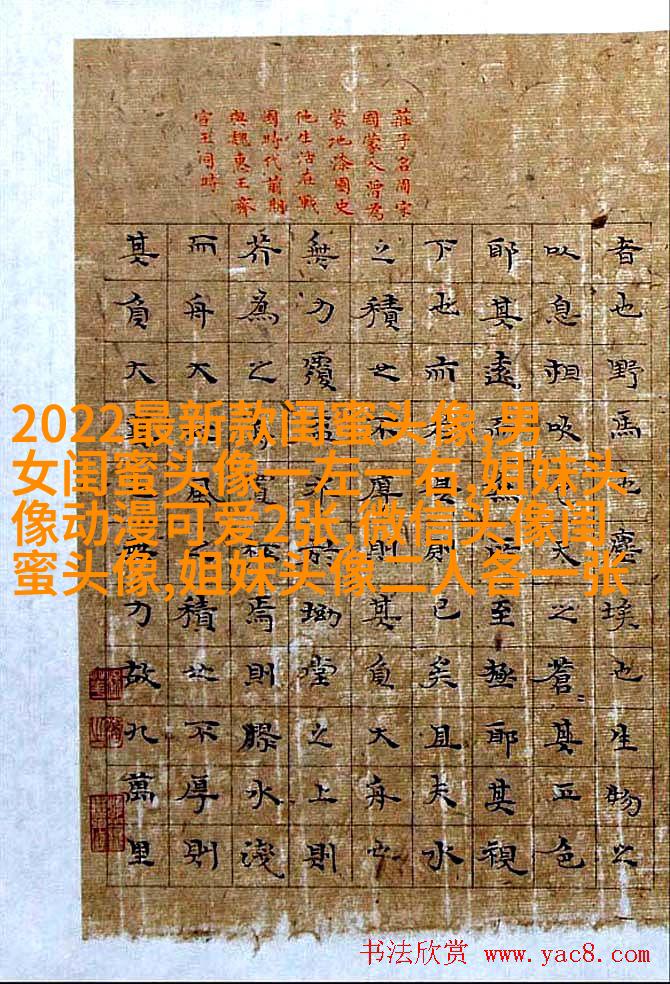 莊子名周宋
國蒙人曾為
蒙地漆園史
他生活在戰
國時代前期
與魏惠王齊
宣王同時
者也野馬也塵埃也生物之
以息相吹也天之蒼其正色
耶其遠而無所至極耶其視
下也而若是則已矣且夫水
之積也不厚則其負大舟也
無力覆杯水於坳堂之上則
芥為之舟置杯焉則膠水淺
而舟大也風之積也不厚則
其負大翼也無力故九萬里
2022最新款闺蜜头像,男
女闺蜜头像一左一右,姐妹头
像动漫可爱2张,微信头像闺
蜜头像,姐妹头像二人各一张
书法欣赏 www.yac8.com